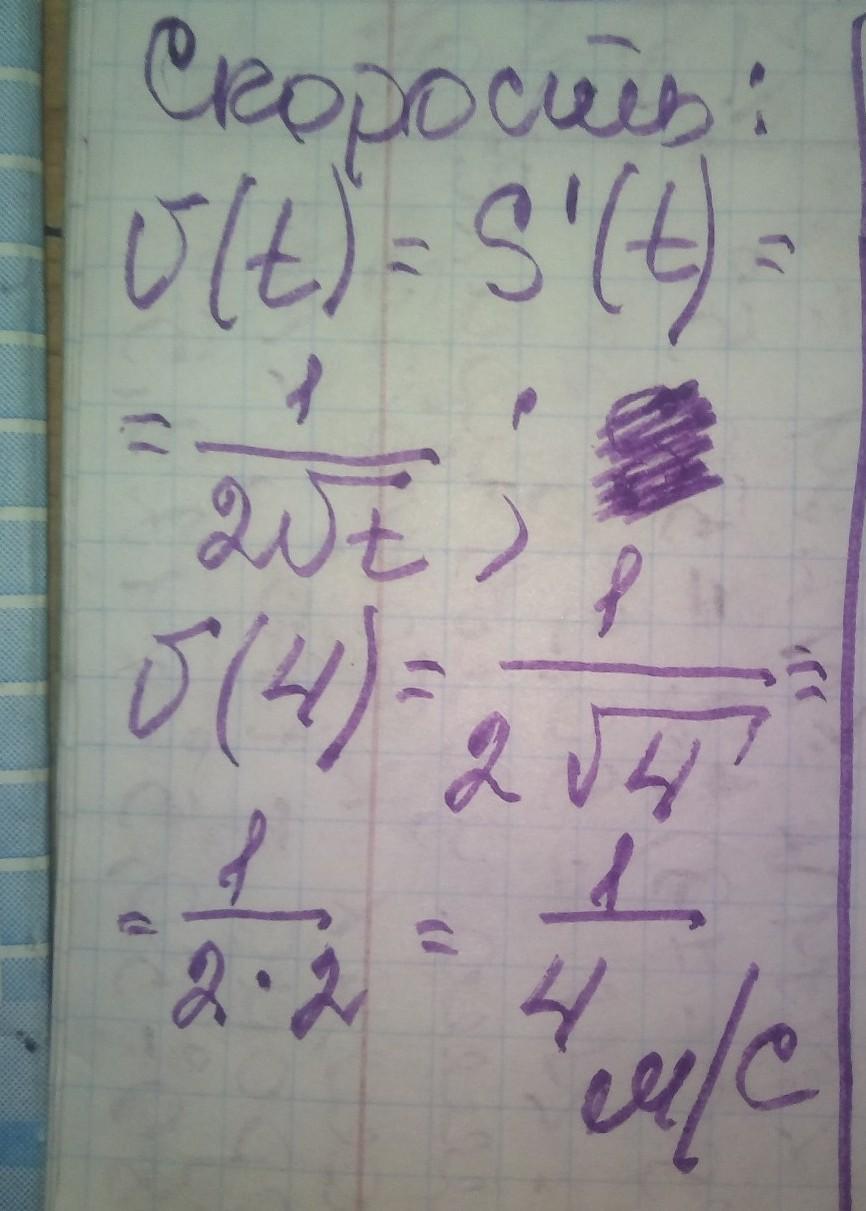 Скорость:
υ(t) = S'(t) =
= 1/(2√t) ;
υ(4) = 1/(2√4) =
= 1/(2·2) = 1/4 м/с